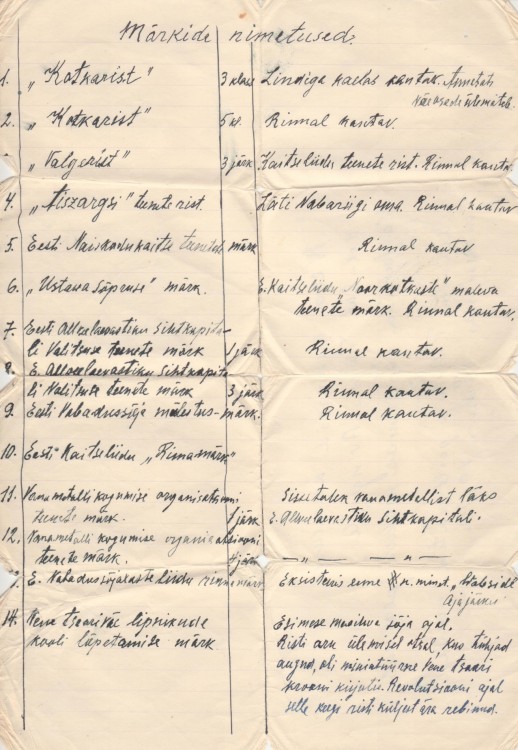 Märkide nimetused.
1. „Kotkarist" 3 klass Lindiga kaelas kantav. Annetati
2. „Kotkarist" 5 kl. Rinnal kantav.
„Valgerist" 3 järk Kaitseliidu teenete rist. Rinnal kantav.
4. „Aiszargsi" teenete rist. Läti Vabariigi oma. Rinnal kantav
5. Eesti Naiskodukaitse teenete märk Rinnal kantav
6. „Ustava Sõpruse" märk. E. Kaitseliidu „Noorkotkaste" maleva
teenete märk. Rinnal kantav.
7. Eesti Allveelaevastiku Sihtkapita-
li Valitsuse teenete märk 1 järk Rinnal kantav.
8. E. Allveelaevastiku Sihtkapita-
li Valitsuse teenete märk 3 järk Rinnal kantav.
9. Eesti Vabadussõja mälestus-märk. Rinnal kantav.
10. Eesti Kaitseliidu „Rinnamärk"
11. Vanametalli kogumise organisatsiooni Sissetulek vanametallist läks
teenete märk. 1 järk E. Allveelaevastiku Sihtkapitali.
12. Vanametalli kogumise organisatsiooni
teenete märk. järk — „ — „ —
E. Vabadussõjalaste liidu rinnamärk. Eksisteeris enne n. nimet. „
Ajajärku
14. Vene tsaariväe lipnikude Esimese maailma sõja ajal.
kooli lõpetamise märk Risti aru ülemisel otsal, kus tühjad
augud, oli miniatüürne Vene tsaari
krooni kujutis. Revolutsiooni ajal
selle keegi risti küljest ära rebinud.